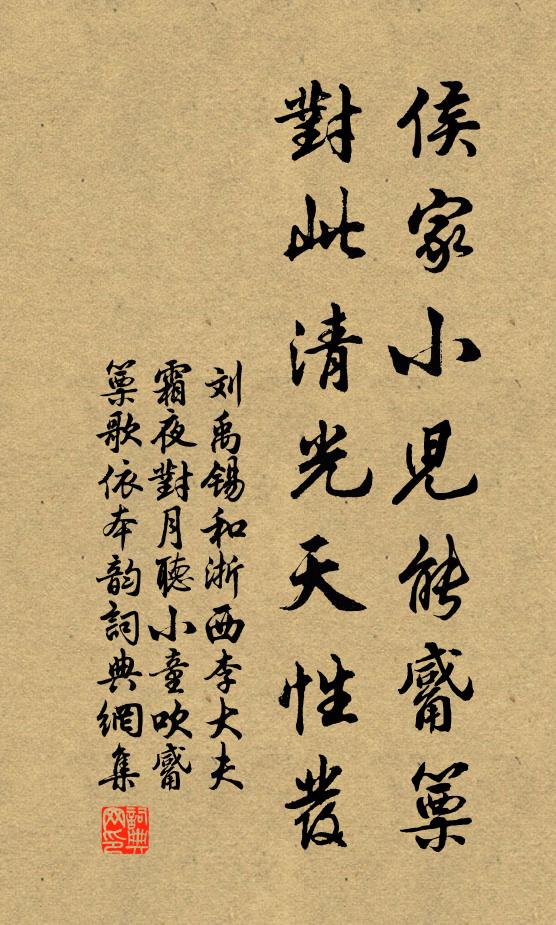 侯家小兒能觱篥
對此清光天性發
刘禹锡和浙西李大夫
霜夜對月聽小童吹觱
篥歌依本韵詞典網集
詞典网印